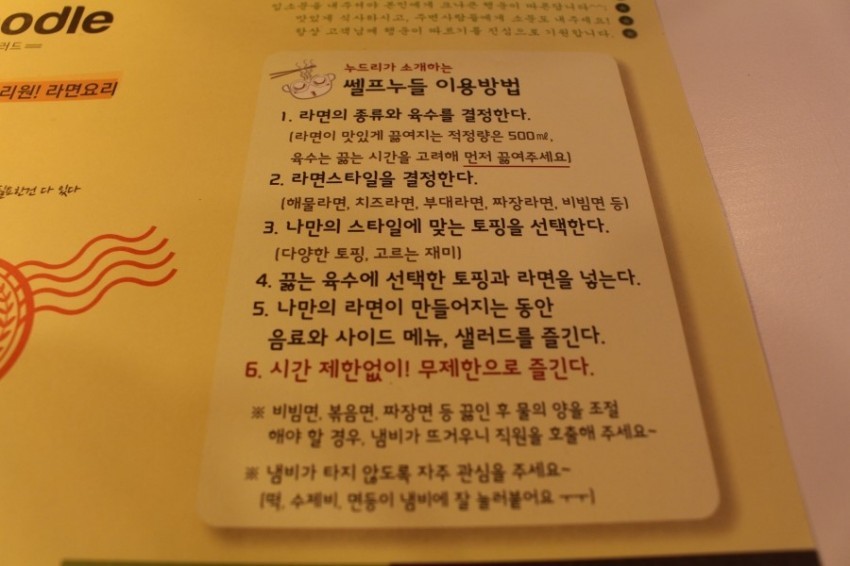 입소문을 내주셔야 본인에게 크나큰 행운이 따른답니다~^^
맛있게 식사하시고, 주변사람들에게 소문도 내주세요!
항상 고객님께 행운이 따르기를 진심으로 기원합니다.
oodle
러드
리원! 라면요리
필요한건 다 있다
누드리가 소개하는
쎌프누들 이용방법
1. 라면의 종류와 육수를 결정한다.
(라면이 맛있게 끓여지는 적정량은 500㎖,
육수는 끓는 시간을 고려해 먼저 끓여주세요)
2. 라면스타일을 결정한다.
(해물라면, 치즈라면, 부대라면, 짜장라면, 비빔면 등)
3. 나만의 스타일에 맞는 토핑을 선택한다.
(다양한 토핑, 고르는 재미)
4. 끓는 육수에 선택한 토핑과 라면을 넣는다.
5. 나만의 라면이 만들어지는 동안
음료와 사이드 메뉴, 샐러드를 즐긴다.
6. 시간 제한없이! 무제한으로 즐긴다.
※ 비빔면, 볶음면, 짜장면 등 끓인 후 물의 양을 조절
해야 할 경우, 냄비가 뜨거우니 직원을 호출해 주세요~
※ 냄비가 타지 않도록 자주 관심을 주세요~
(떡, 수제비, 면등이 냄비에 잘 눌러붙어요 ㅜㅜ)